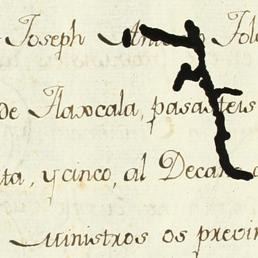 Joseph
de Tlaxcala, pasasteis
ta, y cinco, al Decano
Ministros os previn